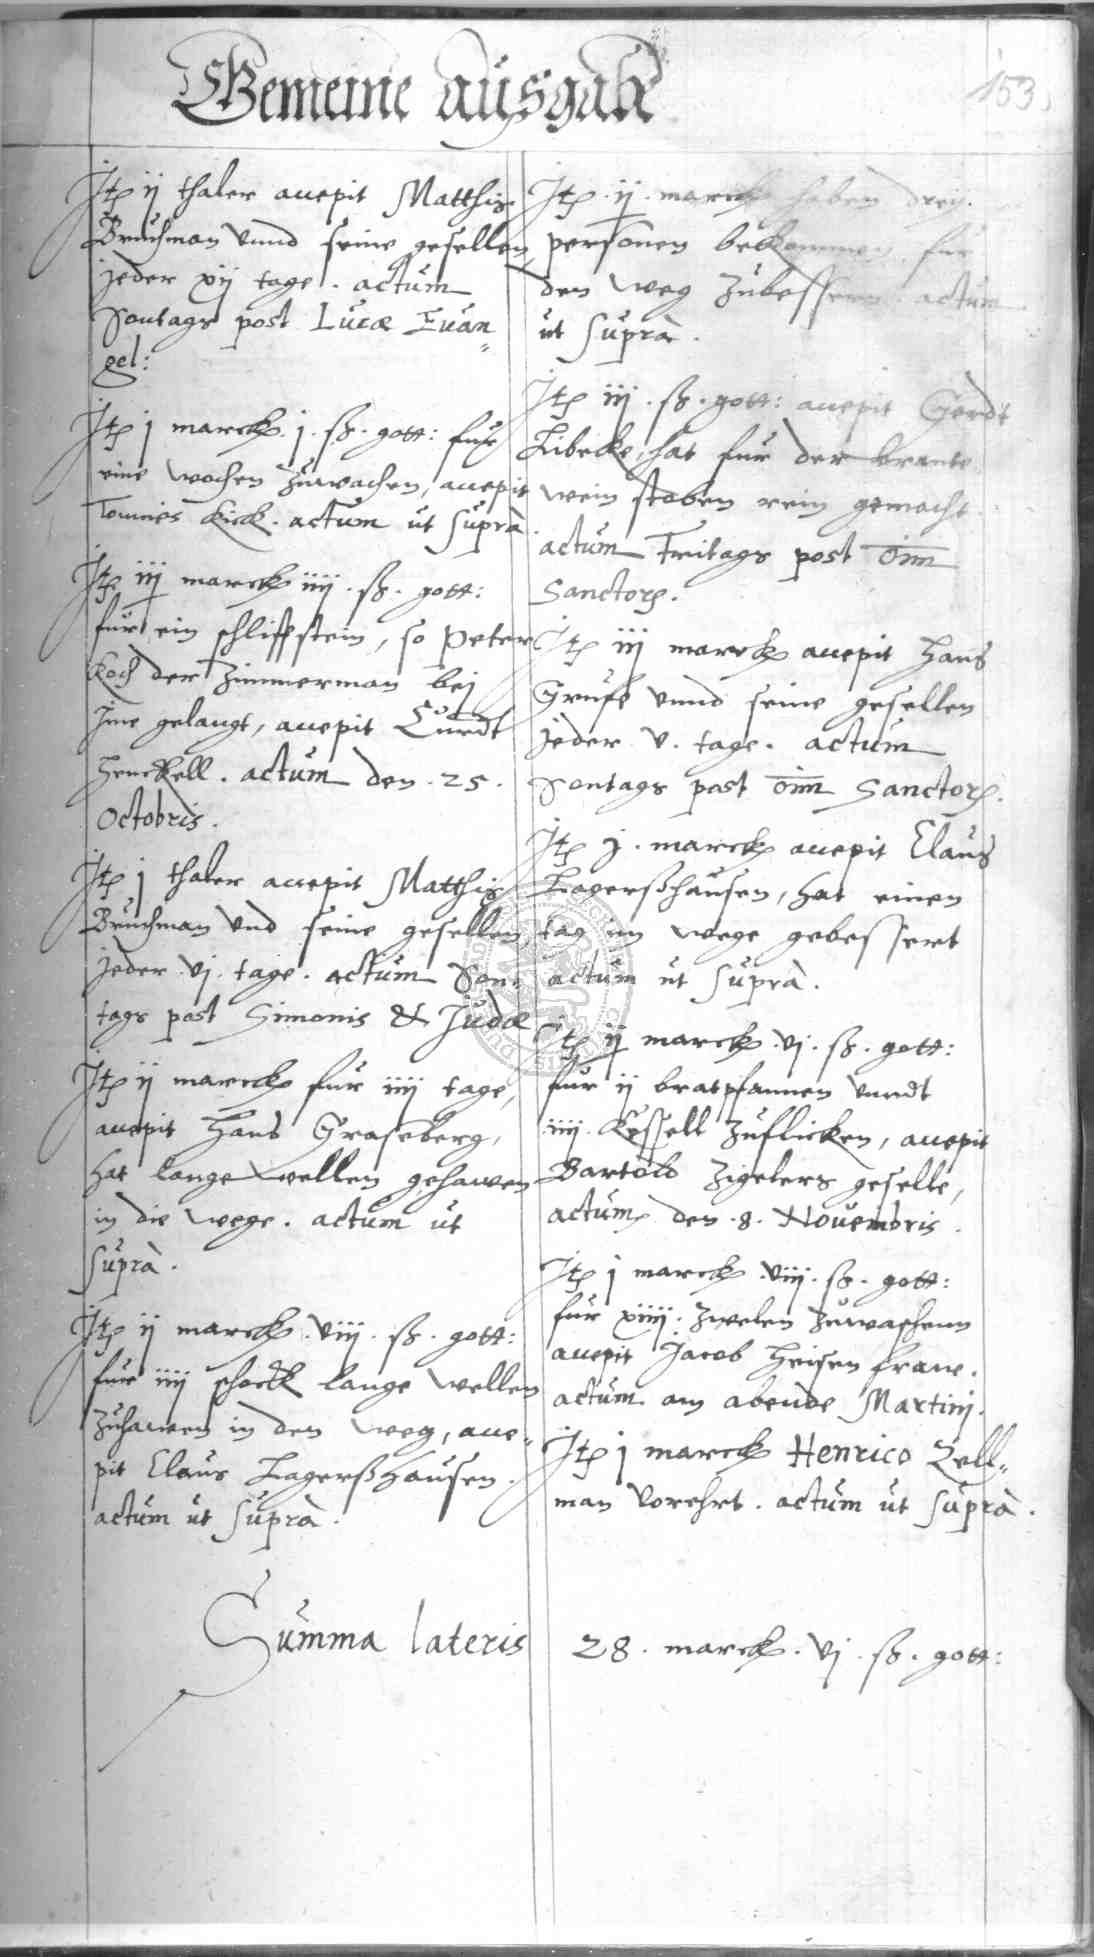 Gemeine ausgabe
153
Jtem ij thaler accepit Matthis
Bruchman vnnd seine gesellen
jeder xij tage. actum
Sontags post Lucæ Euan
gel:
Jtem j marck. j. ß. gott: fur
eine wochen zuwachen, accepit
Tonnies Kick. actum ut suprà
Jtem iij marck iiij. ß. gott:
fur ein schliffstein, so Peter
Koch der Zimmerman bej
Jme gelangt, accepit Curdt
Henckell. actum den. 25.
Octobris.
Jtem j thaler accepit Matthis
Bruchman vnd seine gesellen,
jeder vj. tage. actum Son,
tags post Simonis & Judæ
Jtem ij marck fur iiij tage,
accepit Hans Graseberg,
hat lange wellen gehawen
in die wege. actum ut
suprà.
Jtem ij marck. viij. ß. gott:
fur iiij schock lange wellen
zuhawen in den weg, acce„
pit Claus Lagerßhausen.
actum ut suprà.
Jtem. ij. marck haben drey.
personen bekommen fur
den weg zubessern. actum
ut suprà.
Jtem iij. ß. gott: accepit Gerdt
Libecke, hat fur der brante
wein stoben rein gemacht
actum Freitags post oim
Sanctor.
Jtem iij marck accepit Hans
Grufe vnnd seine gesellen
jeder v. tage. actum
Sontags post oim Sanctor.
Jtem j. marck accepit Claus
Lagerßhausen, hat einen
tag im wege gebessert
actum ut suprà.
Jtem ij marck. vj. ß. gott:
fur ij bratpfannen vnndt
iiij. Kessell zuflicken, accepit
Bartold Zigelers geselle,
actum den. 8. Nouembris.
Jtem j marck. viij. ß. gott:
fur xiiij. zwelen zuwaschenn
accepit Jacob Heisen frawe.
actum am abende Martinj.
Jtem j marck Henrico Zell„
man vorehrt. actum ut suprà.
Summa lateris 28. marck. vj. ß. gott: